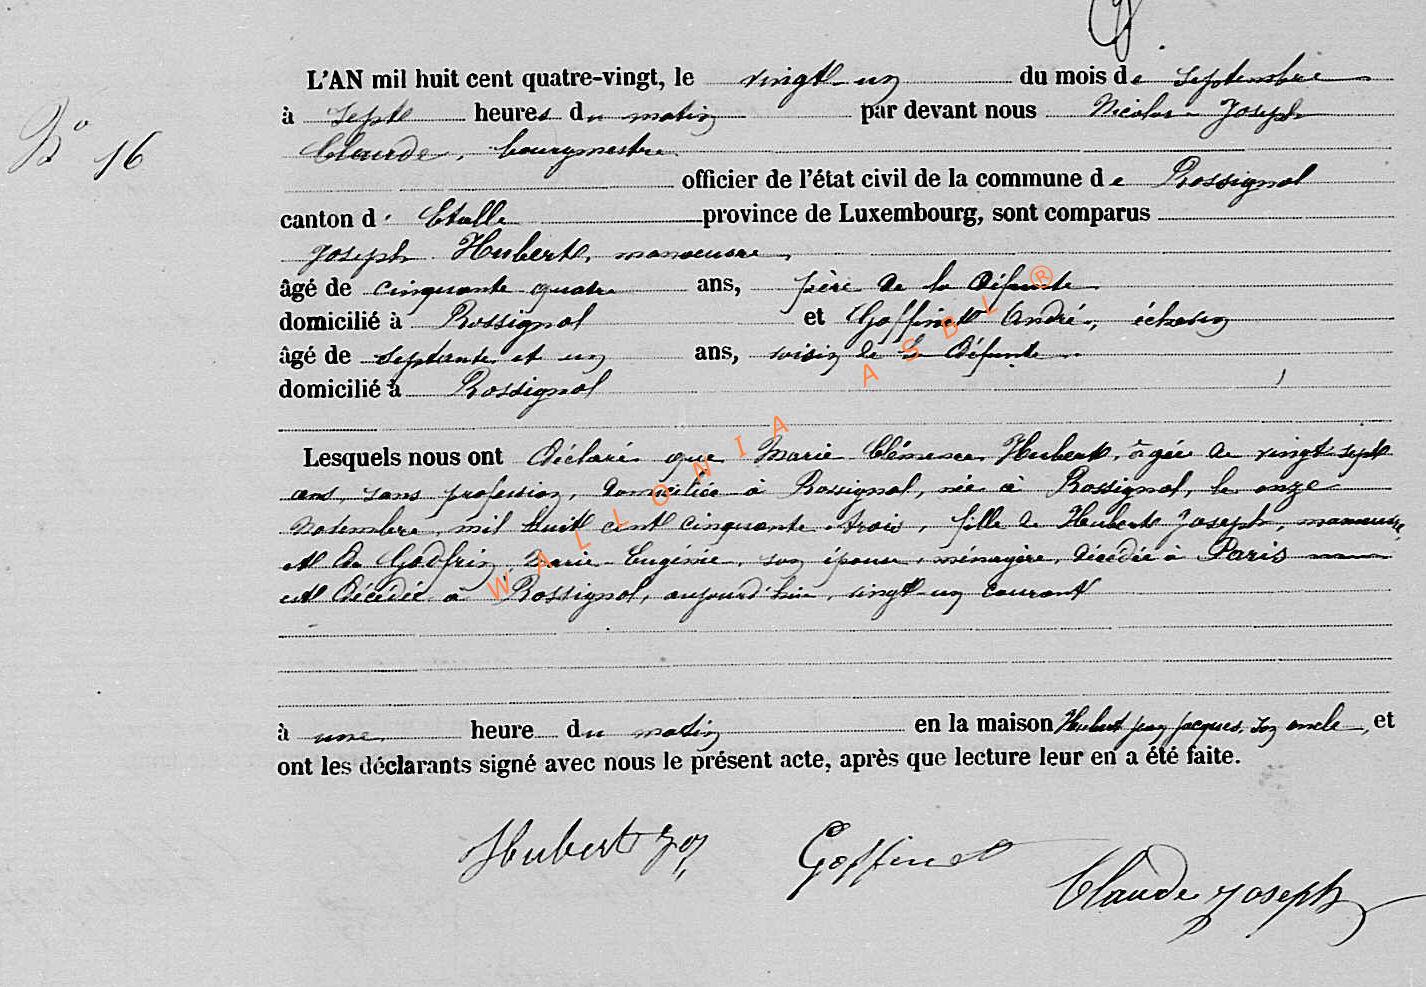 L'AN mil huit cent quatre-vingt, le vingt-un du mois de Septembre
à Sept heures du matin par devant nous Nicolas Joseph
N° 16
Claude, bourgmestre
officier de l'état civil de la commune de Rossignol
canton d'Etalle province de Luxembourg, sont comparus
Joseph Hubert, manoeuvre,
âgé de cinquante quatre ans, père de la défunte
domicilié à Rossignol et Goffinet André, échevin
âgé de septante et un ans, voisin de la défunte
domicilié à Rossignol
Lesquels nous ont déclaré que Marie Clémence Hubert, âgée de vingt sept
ans, sans profession, domiciliée à Rossignol, née à Rossignol, le onze
novembre mil huit cent cinquante trois, fille de Hubert Joseph, manoeuvre
et de Godfrin, Marie-Eugénie, son épouse, ménagère, décédée à Paris
est décédée à Rossignol, aujourd'hui, vingt-un courant
à une heure du matin en la maison Hubert Jean Jacques, son oncle, et
ont les déclarants signé avec nous le présent acte, après que lecture leur en a été faite.
Hubert Jos, Goffinet Claude Joseph
WALLONIA ASBL ®